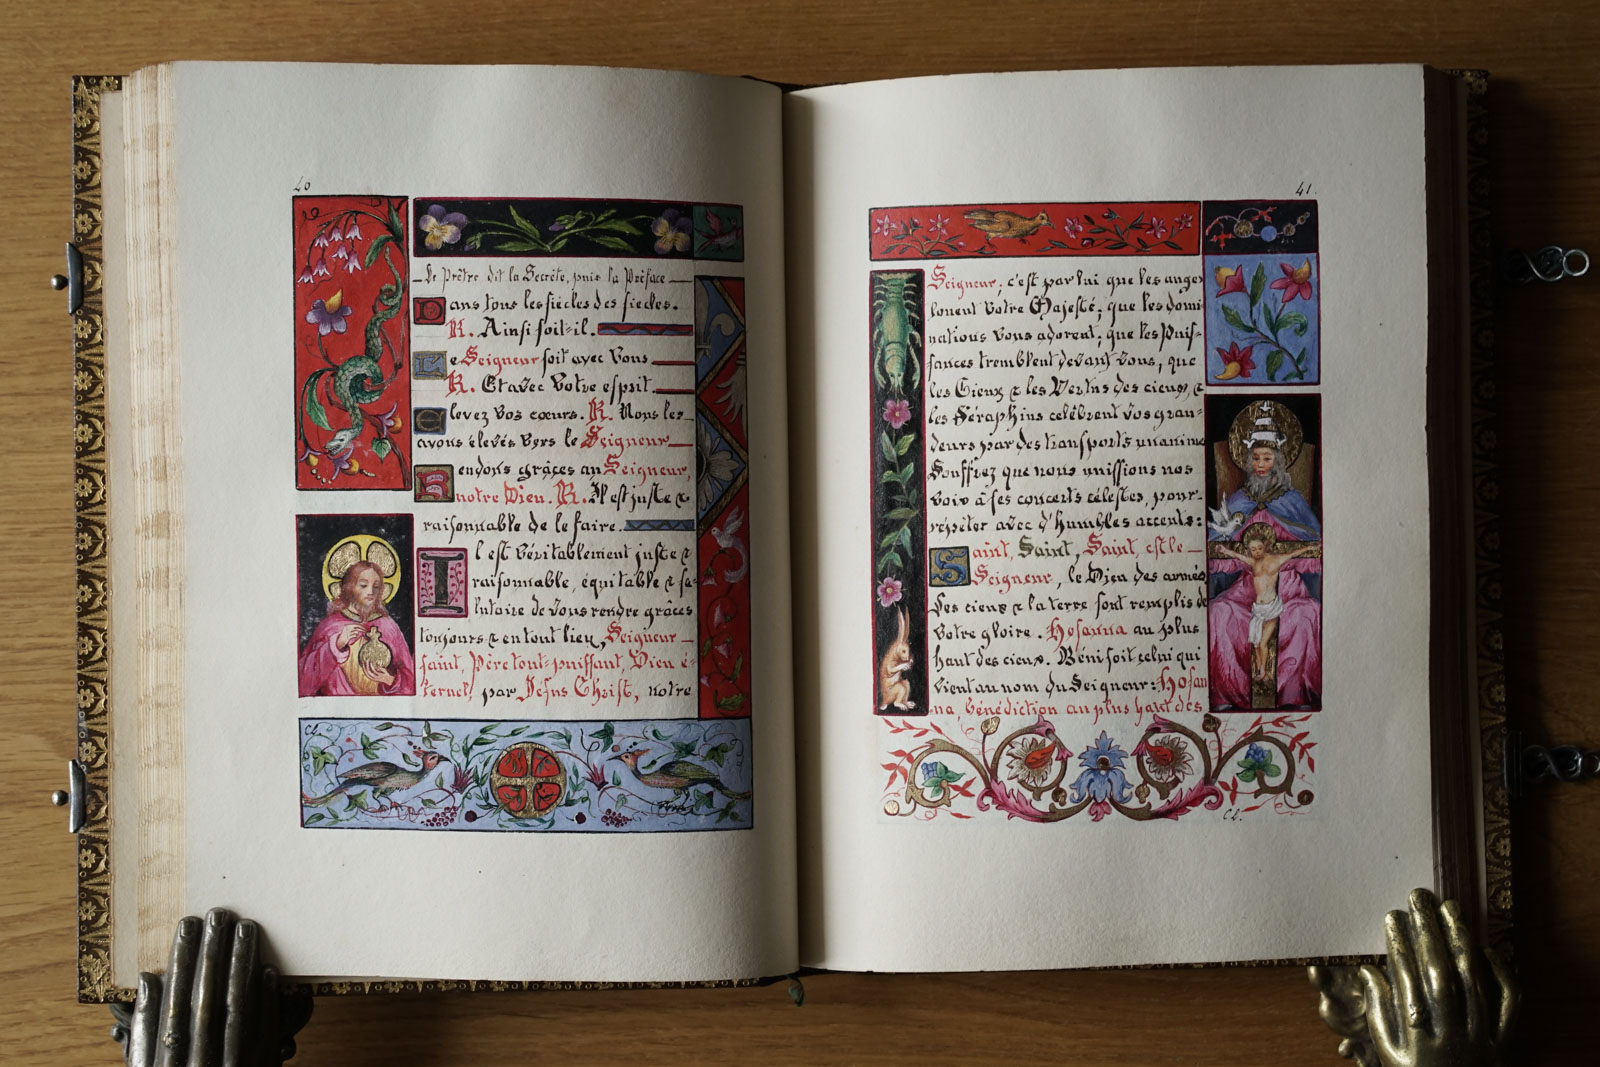 40
Le Prêtre dit la Secrète, puis la Préface
Dans tous les siècles des siècles.
R. Ainsi soit=il.
Le Seigneur soit avec Vous
R. Et avec Votre esprit.
Elevez vos cœurs. R. Nous les
avons élevés vers le Seigneur
Rendons grâces au Seigneur,
notre Dieu. R. Il est juste &
raisonnable de le faire.
Il est véritablement juste &
raisonnable, équitable & sa-
lutaire de vous rendre grâces
toujours & en tout lieu, Seigneur
saint, Père tout-puissant, Dieu é-
ternel, par Jésus Christ, notre
C.L.
41.
Seigneur; c'est par lui que les anges
louent Votre Majesté; que les domi
nations vous adorent; que les Puis-
sances tremblent devant vous, que
les Cieux & les Vertus des cieux, &
les Séraphins célèbrent vos gran=
deurs par des transports unanime
Souffrez que nous unissions nos
voix à ses concerts célestes, pour
répéter avec d'humbles accents:
Saint, Saint, Saint, est le
Seigneur, le Dieu des armée
Les cieux & la terre sont remplis de
Votre gloire. Hosanna au plus
haut des cieux. Béni soit celui qui
vient au nom du Seigneur: Hosan
na, bénédiction au plus haut des
C.L.